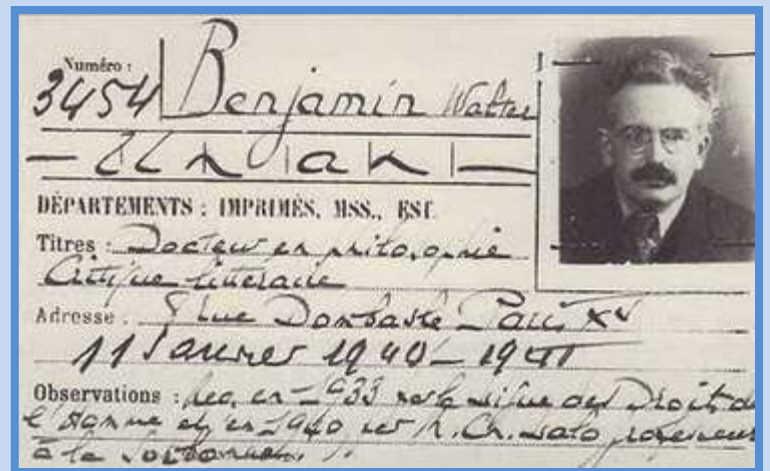 Numéro :
3454 Benjamin Walter
Un an
DÉPARTEMENTS : IMPRIMÉS, MSS., EST.
Titres : Docteur en philosophie
Critique littéraire
Adresse : rue Dombasle Paris XV
11 Janvier 1940 - 1941
Observations : Rec. en 1933 par la Ligue des Droits de
l'Homme et en 1940 par M. Ch. professeur
à la Sorbonne.